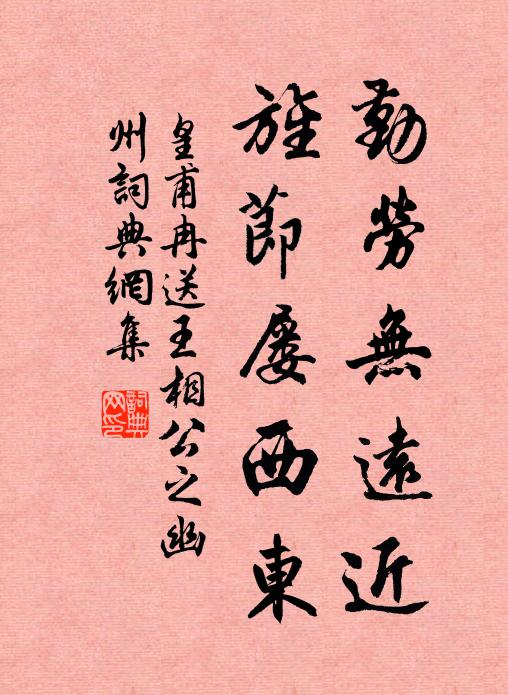 勤勞無遠近
旌節屡西東
皇甫冉送王相公之幽
州詞典網集
詞典网印